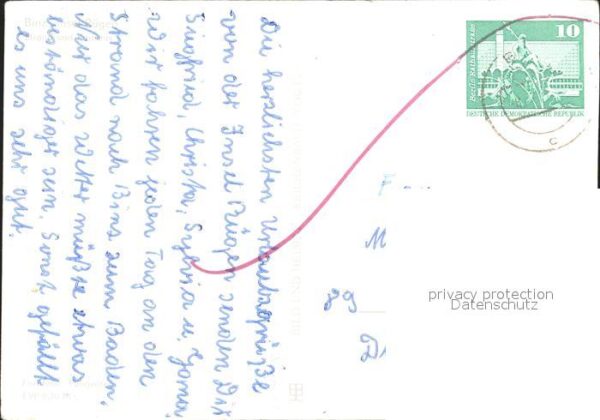 Die herzlichsten Urlaubsgrüße
von der Insel Rügen senden Dir
Siegfried, Christa, Sylvia u.
Wir fahren jeden Tag an den
Strand nach Binz zum Baden.
Nur das Wetter müßte etwas
beständiger sein. Sonst gefällt
es uns sehr gut.
10
Berlin-Rathausstraße
DEUTSCHE DEMOKRATISCHE REPUBLIK
F
M
89
D
privacy protection
Datenschutz